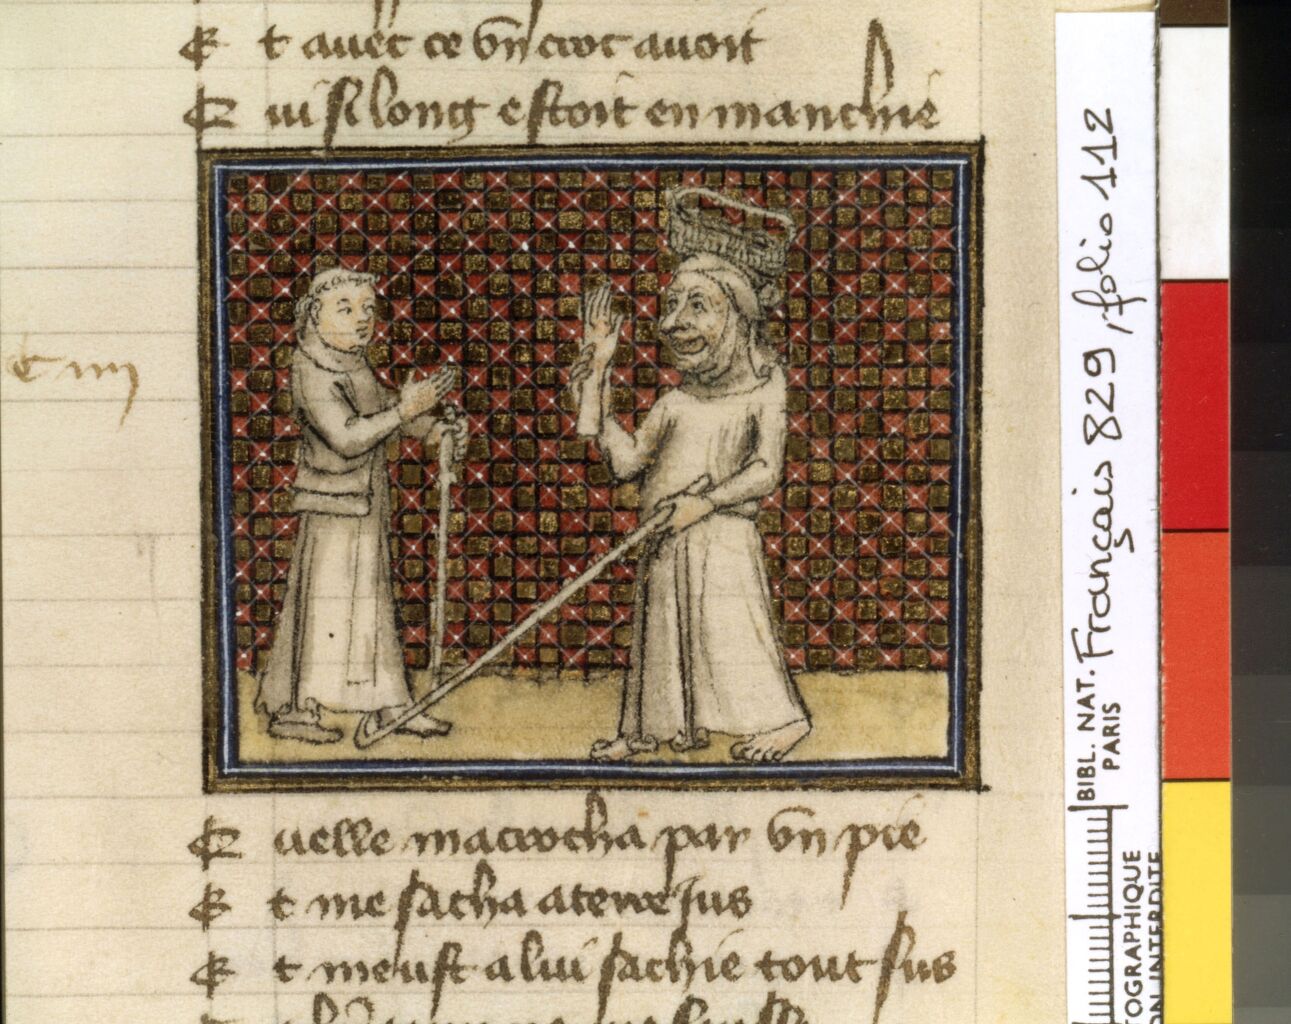 Et avec ce vn croc auoit
Qui si long estoit enmanchie
Quelle macrocha par vn pie
Et me sacha a terre Jus
Et meust a lui sachie tout sus
BIBL. NAT.
PARIS
Français 829, folio 112